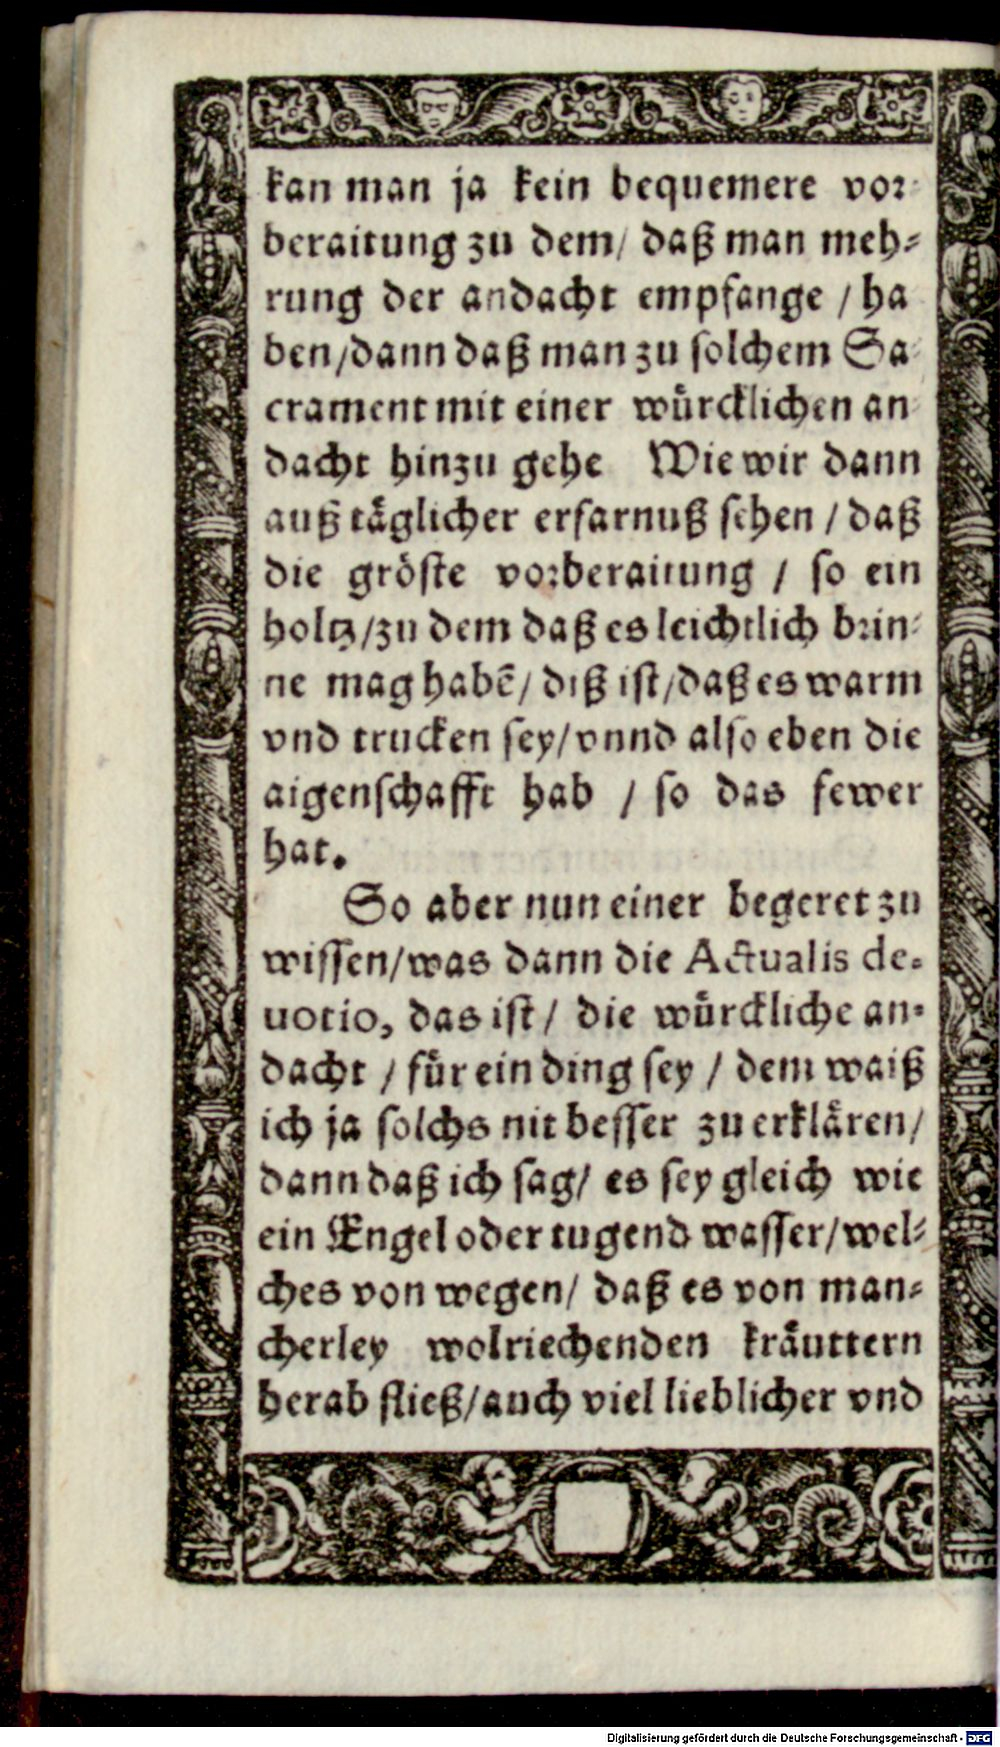 kan man ja kein bequemere vor-
beraitung zu dem/ daß man meh-
rung der andacht empfange / ha
ben/dann daß man zu solchem Sa-
crament mit einer würcklichen an-
dacht hinzu gehe Wie wir dann
auß täglicher erfarnuß sehen / daß
die gröste vorberaitung / so ein
holtz/zu dem daß es leichtlich brin-
ne mag habē/ diß ist/daß es warm
vnd trucken sey/vnnd also eben die
aigenschafft hab / so das fewer
hat.
So aber nun einer begeret zu
wissen/was dann die Actualis de-
uotio, das ist/ die würckliche an-
dacht / für ein ding sey / dem waiß
ich ja solchs nit besser zu erklären/
dann daß ich sag/ es sey gleich wie
ein Engel oder tugend wasser/wel-
ches von wegen/ daß es von man-
cherley wolriechenden kräuttern
herab fließ/auch viel lieblicher vnd
Digitalisierung gefördert durch die Deutsche Forschungsgemeinschaft - DFG